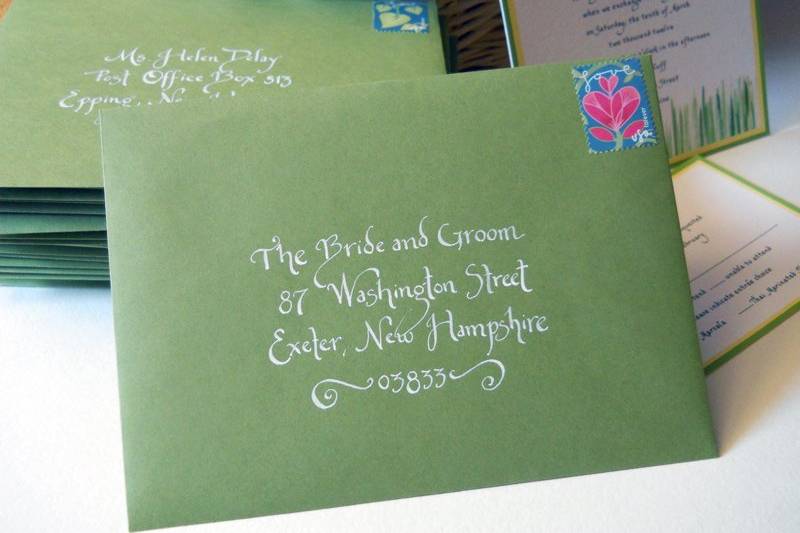 Ms. Helen Delay
Post Office Box 513
Epping,
love
forever
usa
The Bride and Groom
87 Washington Street
Exeter, New Hampshire
03833
when we exchange
on Saturday, the tenth of March
Two thousand twelve
o'clock in the afternoon
Street
unable to attend
indicate entrée choice
Marsala
Thai Marinated